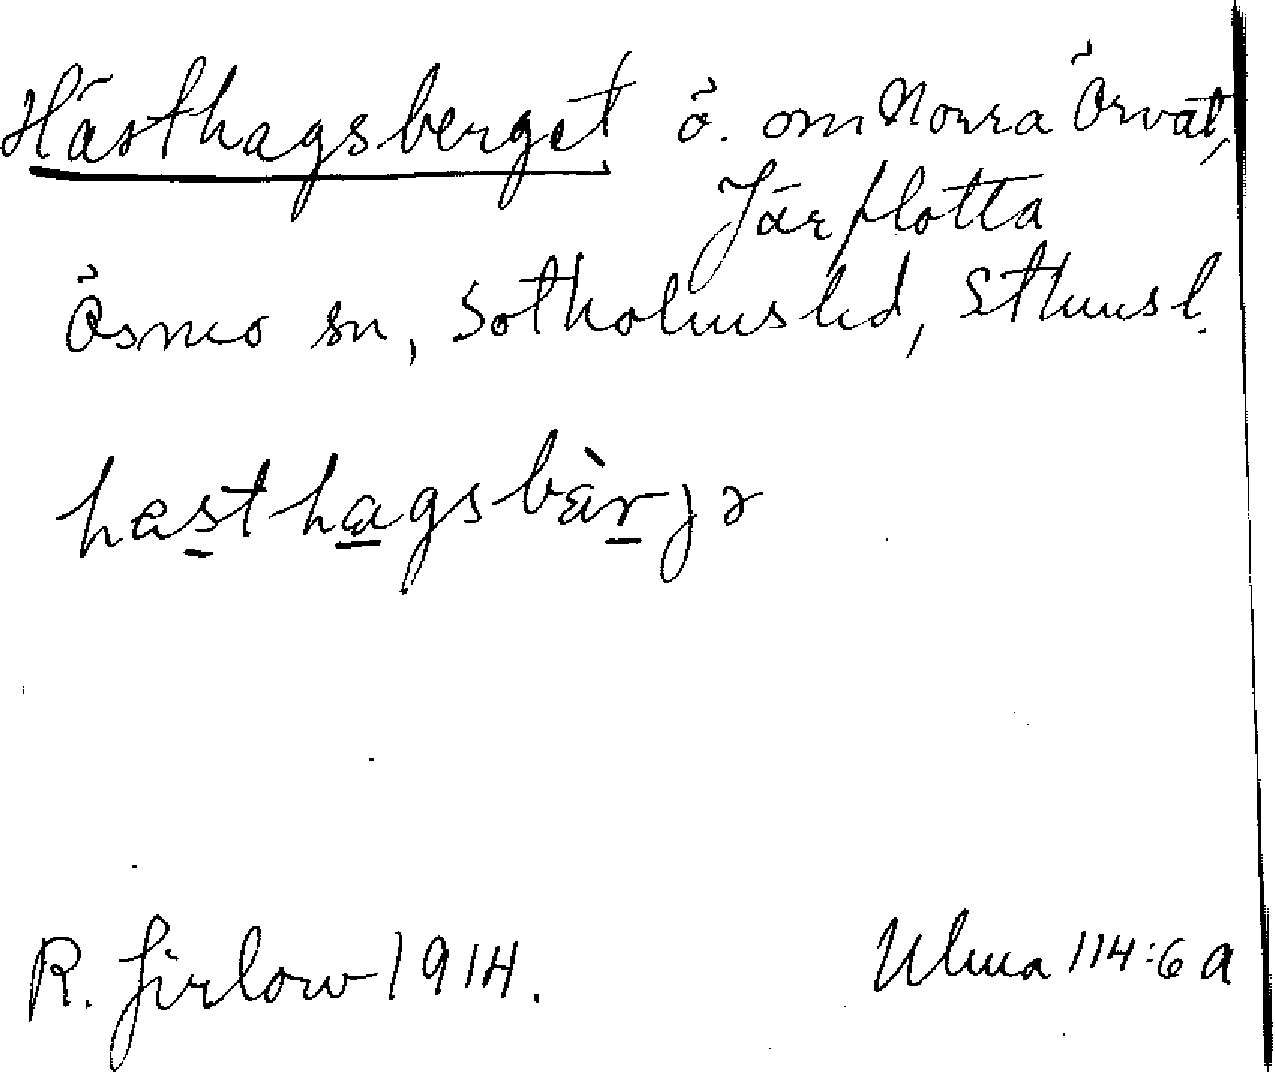 Hästhagsberget ö. om Norra Örvät,
Järflotta
Ösmo sn, Sotholms hd, Sthms l.
hasthagsbàrjə
R. Jirlow 1914.
Ulma 114:6a